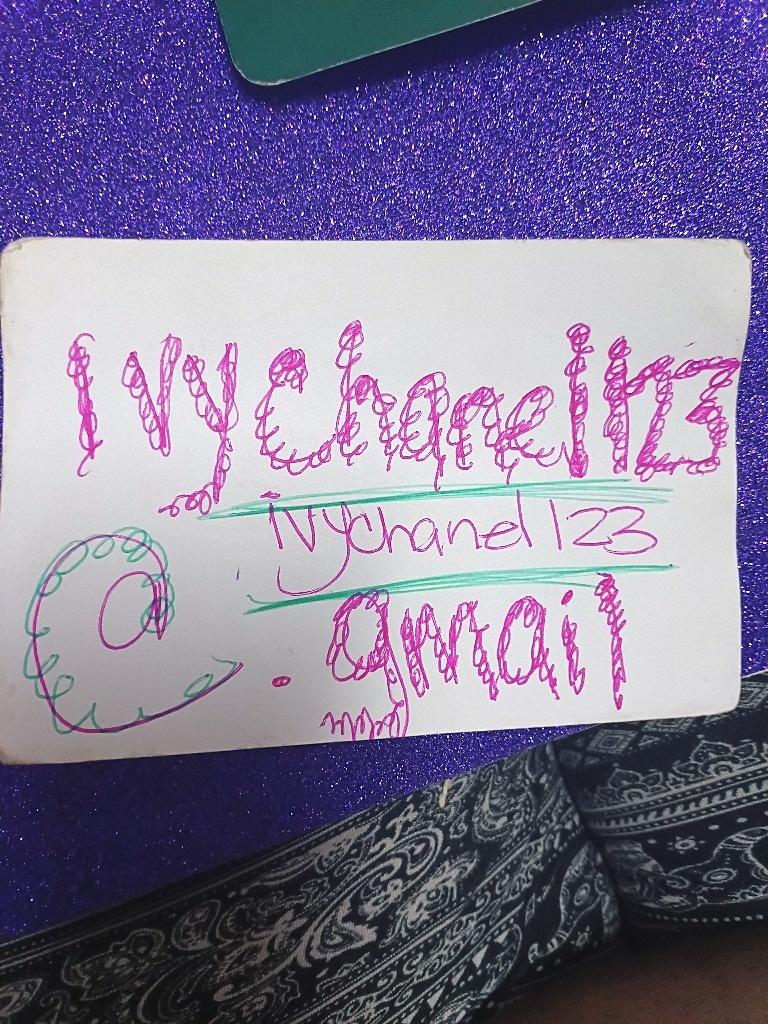 Ivychanel123
ivychanel 123
@ .gmail